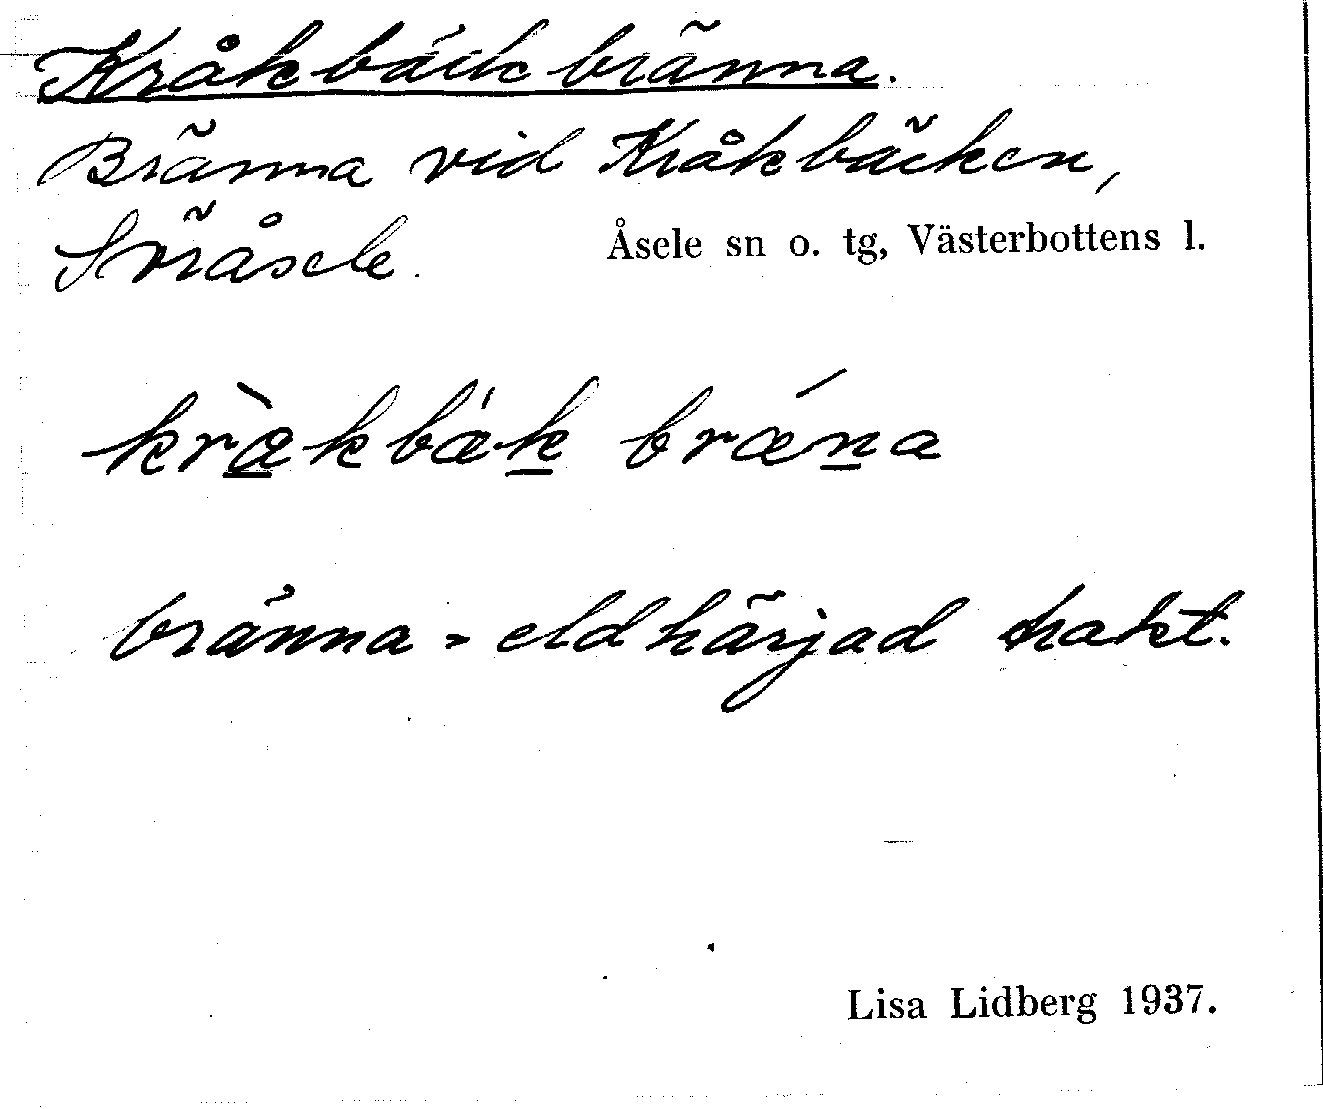 Kråkbäckbränna.
Bränna vid Kråkbäcken,
Åsele sn o. tg, Västerbottens l.
kràkbæ'k brǽna
bränna = eldhärjad trakt.
Lisa Lidberg 1937.